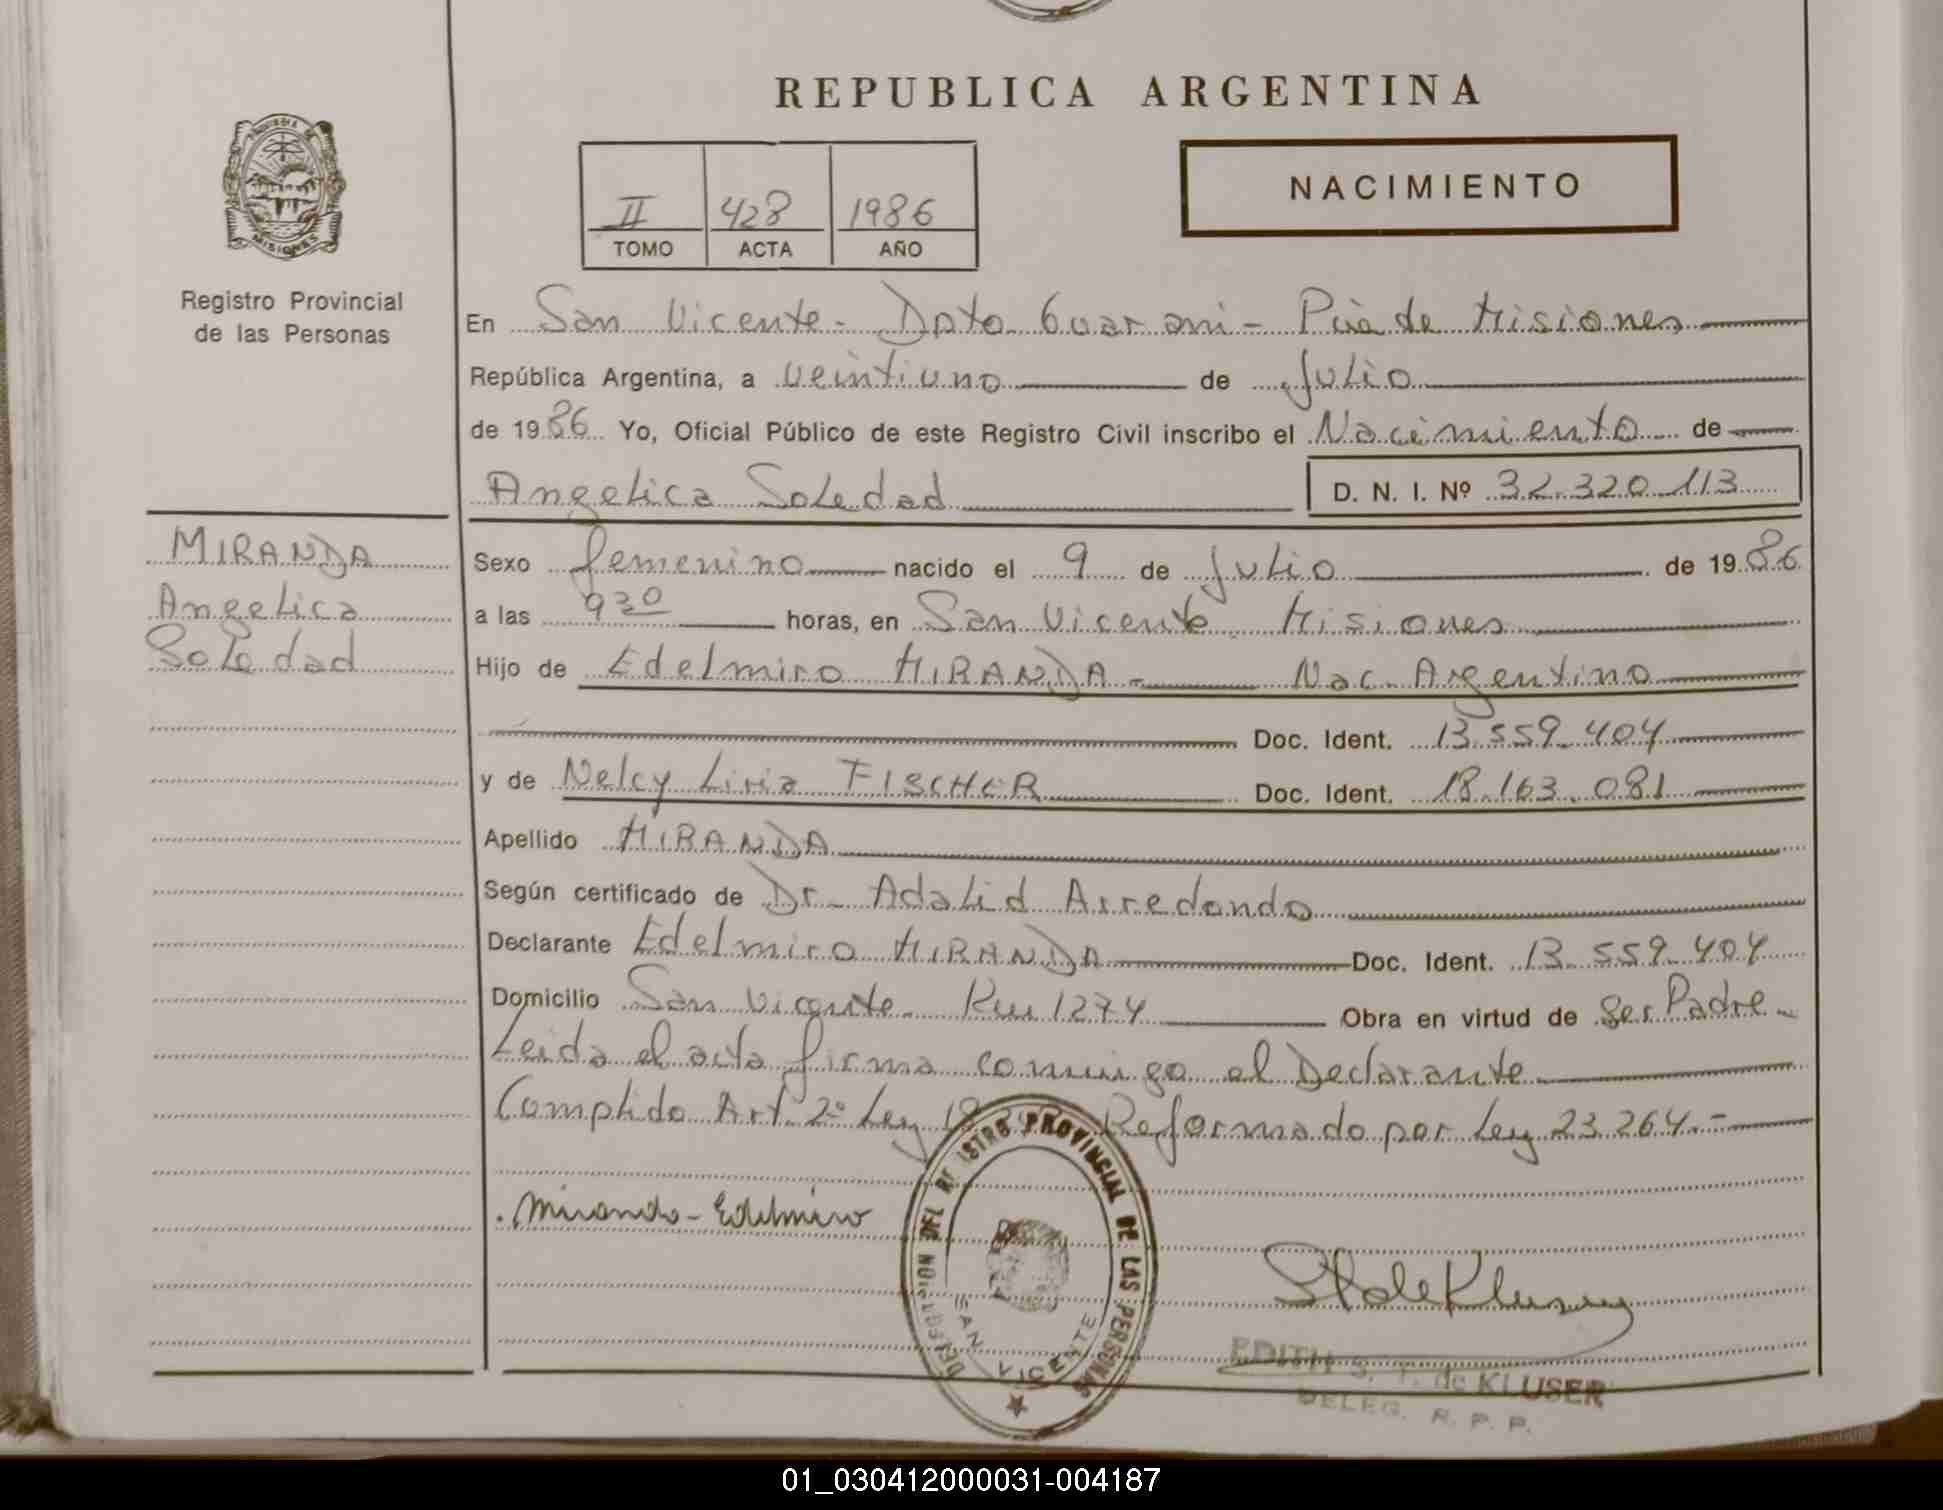 REPUBLICA ARGENTINA
PROVINCIA DE
MISIONES
Registro Provincial
de las Personas
II 428 1986
TOMO ACTA AÑO
NACIMIENTO
En San Vicente - Dpto Guarani - Pcia de Misiones
República Argentina, a veintiuno de Julio
de 1986 Yo, Oficial Público de este Registro Civil inscribo el Nacimiento de
Angelica Soledad D. N. I. Nº 32.320.113
MIRANDA
Angelica
Soledad
Sexo femenino nacido el 9 de Julio de 1986
a las 9 30 horas, en San Vicente Misiones
Hijo de Edelmiro MIRANDA - Nac. Argentino
Doc. Ident. 13.559.404
y de Nelcy Liria FISCHER Doc. Ident. 18.163.081
Apellido MIRANDA
Según certificado de Dr. Adalid Arredondo
Declarante Edelmiro MIRANDA Doc. Ident. 13.559.404
Domicilio San Vicente Km 1274 Obra en virtud de Ser Padre -
Leida el acta firma conmigo el Declarante
Complido Art. 2º Ley Reformado por Ley 23.264.-
Miranda - Edelmiro
DELEGACION DEL REGISTRO PROVINCIAL DE LAS PERSONAS
SAN VICENTE
EDITH S. T. de KLUSER
DELEG. R. P. P.
01_030412000031-004187